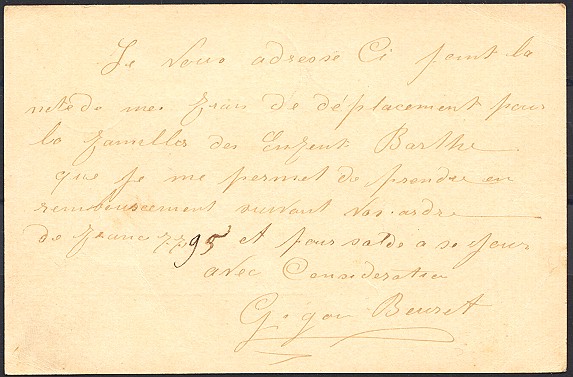 Je vous adresse Ci joint la
note de mes frais de déplacement pour
la famille des Enfent Barthe
que je me permet de prendre en
remboursement suivant vos ordre
de franc 95 et pour solde a ce jour
avec Consideration
Gigon Beuret